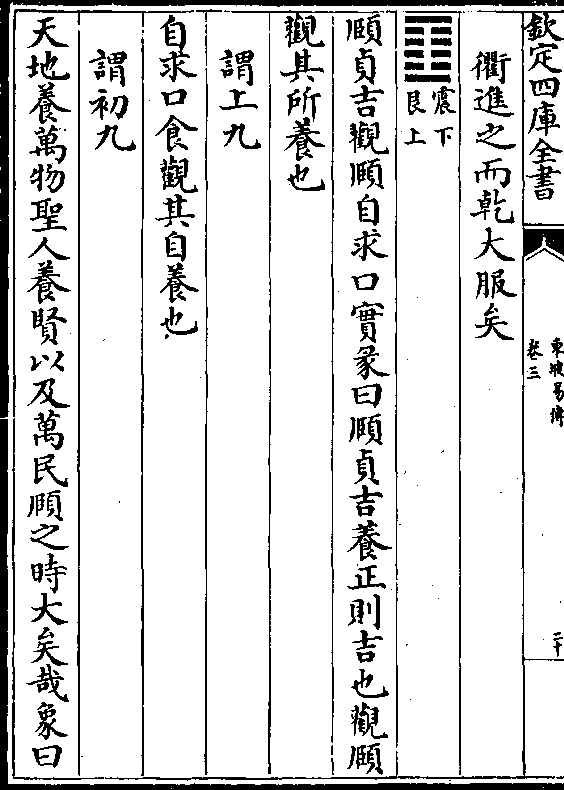 欽定四庫全書
東坡易傳
卷三
二十
衢進之而乾大服矣
䷚
震下
艮上
頤貞吉觀頤自求口實彖曰頤貞吉養正則吉也觀頤
觀其所養也
謂上九
自求口食觀其自養也
謂初九
天地養萬物聖人養賢以及萬民頤之時大矣哉象曰